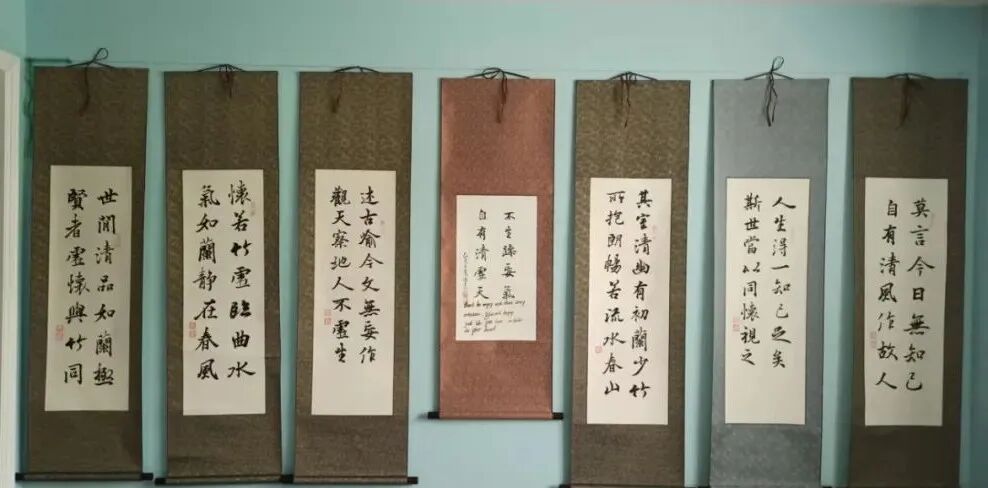 世間清品如蘭極
賢者虛懷與竹同
懷若竹虛臨曲水
氣如蘭靜在春風
述古喻今文無妄作
觀天察地人不虛生
不生躁妄氣
自有清虛天
be angry and then every
just like you have
in your heart
其室清幽有初蘭少竹
所抱朗暢若流水春山
人生得一知己足矣
斯世當以同懷視之
莫言今日無知己
自有清風作故人